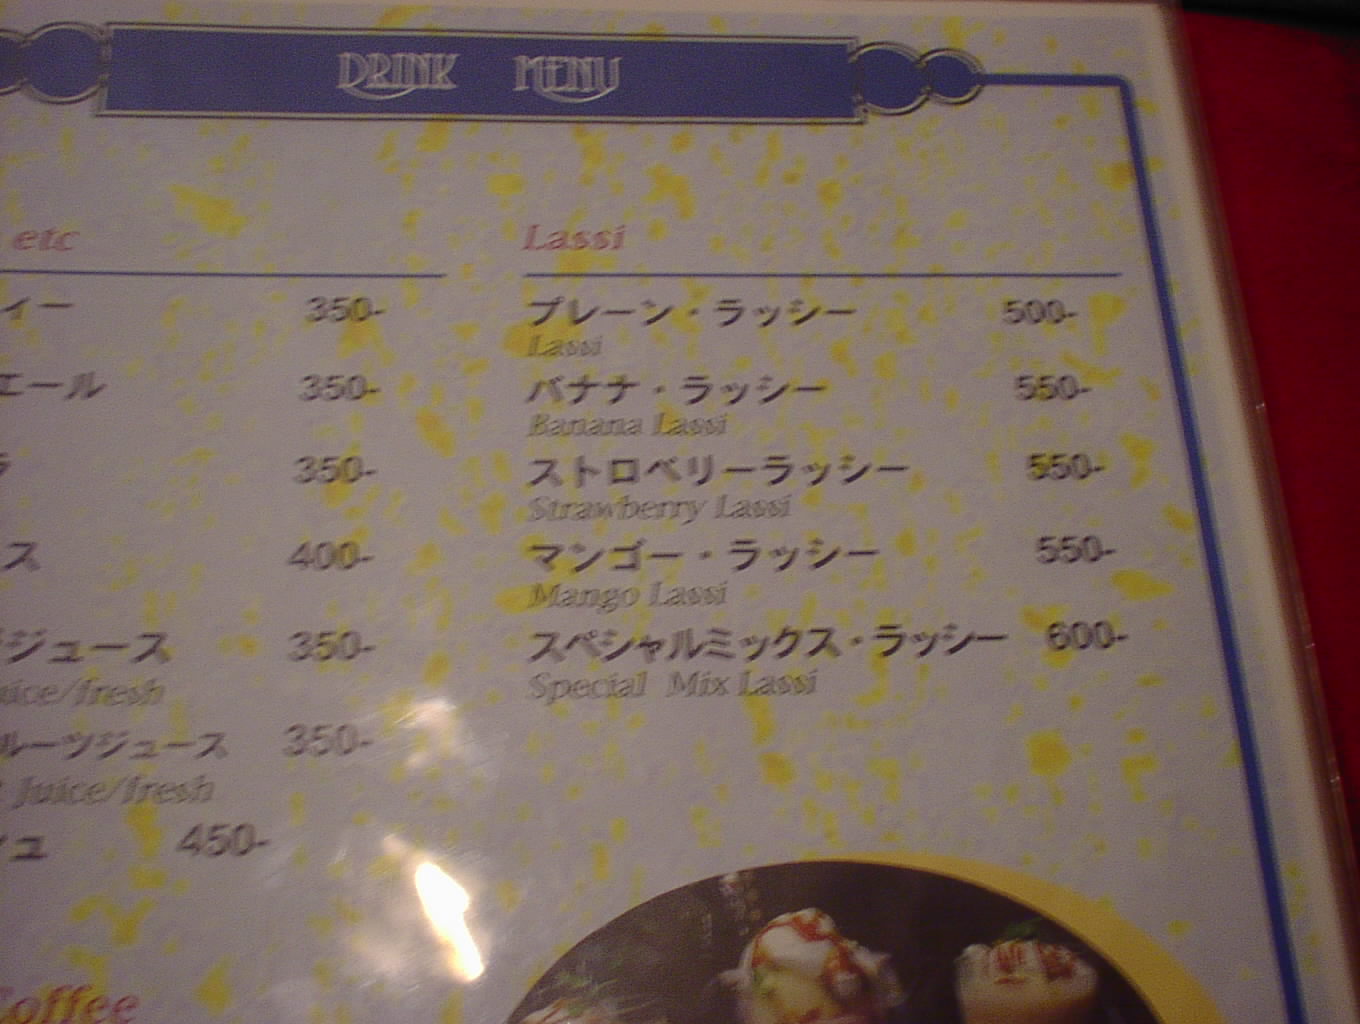 DRINK MENU
etc
ィー 350-
エール 350-
ラ 350-
ス 400-
ジュース 350-
uice/fresh
ルーツジュース 350-
Juice/fresh
シュ 450-
Coffee
Lassi
プレーン・ラッシー 500-
Lassi
バナナ・ラッシー 550-
Banana Lassi
ストロベリーラッシー 550-
Strawberry Lassi
マンゴー・ラッシー 550-
Mango Lassi
スペシャルミックス・ラッシー 600-
Special Mix Lassi